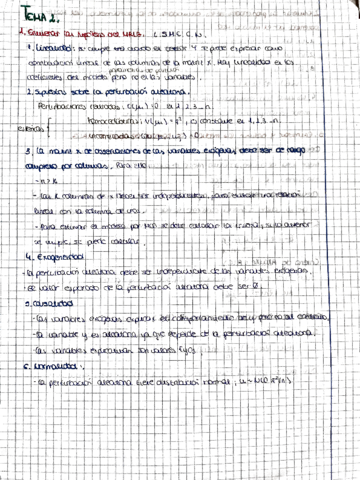 TEMA 2.
1. Enumerar las hipótesis del MRLG. L.S.M.E.C.N.
1. Linealidad: se cumple esta cuando el vector Y se puede expresar como
combinación lineal de las columnas de la matriz X. Hay linealidad en los
coeficientes del modelo pero no en las variables.
2. Supuestos sobre la perturbación aleatoria.
Perturbaciones centradas: E(μi) = 0 i = 1, 2, 3...n.
esféricas
Homocedásticas: V(μi) = σ², constante i = 1, 2, 3...n
Incorreladas: = 0
3. La matriz X de observaciones de las variables exógenas debe ser de rango
completo por columnas. Para ello:
- n > k
- Las k columnas de X deben ser independientes,
lineal con la columna de unos.
- Para estimar el modelo por MCO se debe calcular la si la anterior
se cumple se puede calcular.
4. Exogeneidad
- La perturbación aleatoria debe ser independiente de las variables exógenas.
- El valor esperado de la perturbación aleatoria debe ser 0.
5. Causalidad
- Las variables exógenas explican el comportamiento de y pero no al contrario.
- La variable y es aleatoria ya que depende de la perturbación aleatoria.
- Las variables explicativas son
6. Normalidad.
- La perturbación aleatoria tiene distribución normal,